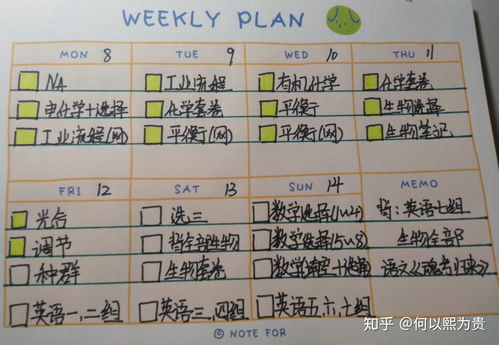 WEEKLY PLAN
MON 8
NA
电化学+选择
工业流程(网)
TUE 9
工业流程
化学套卷
平衡(网)
WED 10
有机化学
平衡
平衡(网)
THU 11
化学套卷
生物选择
生物笔记
FRI 12
光合
调节
种群
英语一,二组
SAT 13
选三
生物套卷
英语三,四组
SUN 14
数学选择(1~4)
数学选择(5~8)
英语五,六,七组
MEMO
背:英语七组
生物全部
© NOTE FOR
知乎 @何以熙为贵